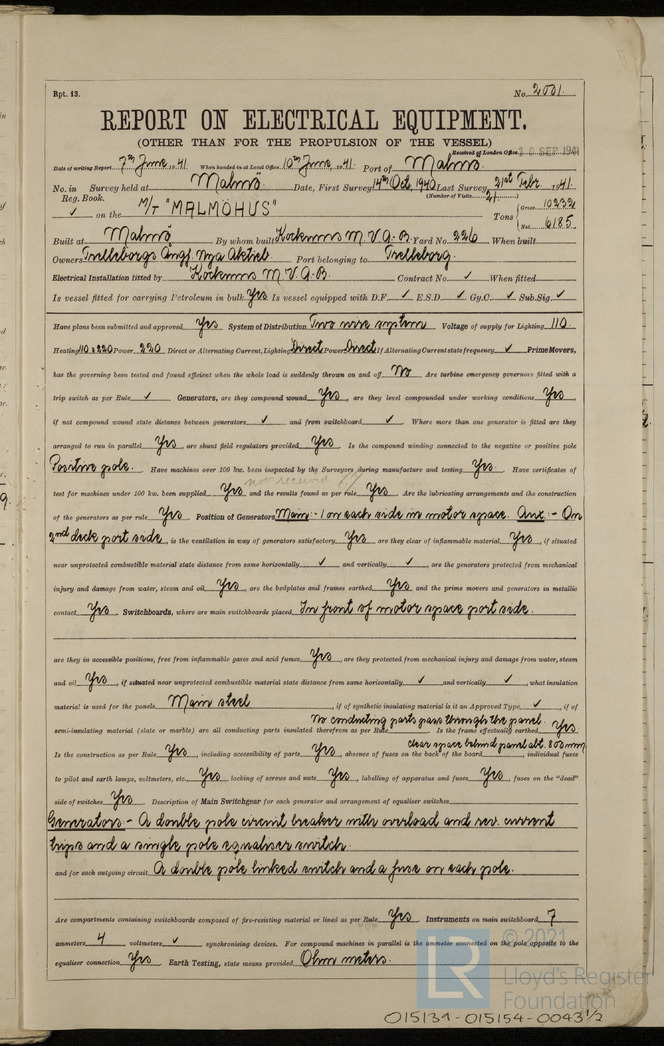 Rpt. 13.
No. 2001.
REPORT ON ELECTRICAL EQUIPMENT.
(OTHER THAN FOR THE PROPULSION OF THE VESSEL)
Received at London Office 10 SEP 1941
Date of writing Report 7th June, 1941 When handed in at Local Office 10th June, 1941. Port of Malmö.
No. in Survey held at Malmö Date, First Survey 14th Oct, 1940 Last Survey 21st Febr. 1941.
Reg. Book. (Number of Visits )
✓ on the M/T "MALMÖHUS" Tons { Gross 10232
Net 6185
Built at Malmö By whom built Kockums M.V.A-B. Yard No. 226 When built
Owners Trelleborgs Ångf. Nya Aktieb. Port belonging to Trelleborg.
Electrical Installation fitted by Kockums M.V.A-B. Contract No. ✓ When fitted
Is vessel fitted for carrying Petroleum in bulk Yes Is vessel equipped with D.F. ✓ E.S.D. ✓ Gy.C. ✓ Sub.Sig. ✓
Have plans been submitted and approved Yes System of Distribution Two wire system Voltage of supply for Lighting 110
Heating 110 & 220 Power 220 Direct or Alternating Current, Lighting Direct Power Direct If Alternating Current state frequency ✓ Prime Movers,
has the governing been tested and found efficient when the whole load is suddenly thrown on and off No Are turbine emergency governors fitted with a
trip switch as per Rule ✓ Generators, are they compound wound Yes, are they level compounded under working conditions Yes,
if not compound wound state distance between generators ✓ and from switchboard ✓ Where more than one generator is fitted are they
arranged to run in parallel Yes, are shunt field regulators provided Yes Is the compound winding connected to the negative or positive pole
Positive pole. Have machines over 100 kw. been inspected by the Surveyors during manufacture and testing Yes Have certificates of
not received
test for machines under 100 kw. been supplied Yes and the results found as per rule Yes Are the lubricating arrangements and the construction
of the generators as per rule Yes Position of Generators Main:- 1 on each side in motor space. Aux:- On
2nd deck port side, is the ventilation in way of generators satisfactory Yes are they clear of inflammable material Yes, if situated
near unprotected combustible material state distance from same horizontally ✓ and vertically ✓, are the generators protected from mechanical
injury and damage from water, steam and oil Yes, are the bedplates and frames earthed Yes and the prime movers and generators in metallic
contact Yes Switchboards, where are main switchboards placed In front of motor space port side.
are they in accessible positions, free from inflammable gases and acid fumes Yes, are they protected from mechanical injury and damage from water, steam
and oil Yes, if situated near unprotected combustible material state distance from same horizontally ✓ and vertically ✓, what insulation
material is used for the panels Main steel, if of synthetic insulating material is it an Approved Type ✓, if of
No conducting parts pass through the panel
semi-insulating material (slate or marble) are all conducting parts insulated therefrom as per Rule Is the frame effectually earthed Yes
clear space behind panel abt. 800 mm
Is the construction as per Rule Yes, including accessibility of parts Yes, absence of fuses on the back of the board , individual fuses
to pilot and earth lamps, voltmeters, etc., Yes locking of screws and nuts Yes, labelling of apparatus and fuses Yes, fuses on the "dead"
side of switches Yes Description of Main Switchgear for each generator and arrangement of equaliser switches
Generators:- A double pole circuit breaker with overload and rev. current
trips and a single pole equaliser switch.
and for each outgoing circuit A double pole linked switch and a fuse on each pole.
Are compartments containing switchboards composed of fire-resisting material or lined as per Rule Yes Instruments on main switchboard 7
ammeters 4 voltmeters ✓ synchronising devices. For compound machines in parallel is the ammeter connected on the pole opposite to the
equaliser connection Yes Earth Testing, state means provided Ohm meters.
© 2021
LR
Lloyd's Register
Foundation
015134-015154-0043 1/2